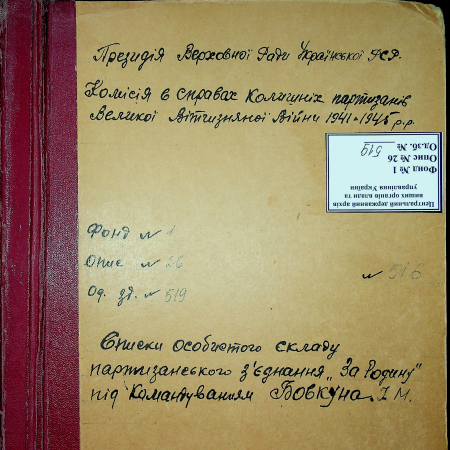 Президія Верховної Ради Української РСР.
Комісія в справах колишніх партизанів
Великої Вітчизняної Війни 1941-1945 р.р.
Центральний державний архів
вищих органів влади та
управління України
Фонд № 1
Опис № 26
Од.зб. № 519
Фонд № 1
Опис № 26
№ 516
Од. зб. № 519
Списки особистого складу
партизанського з'єднання „За Родину"
під командуванням Бовкуна І М.